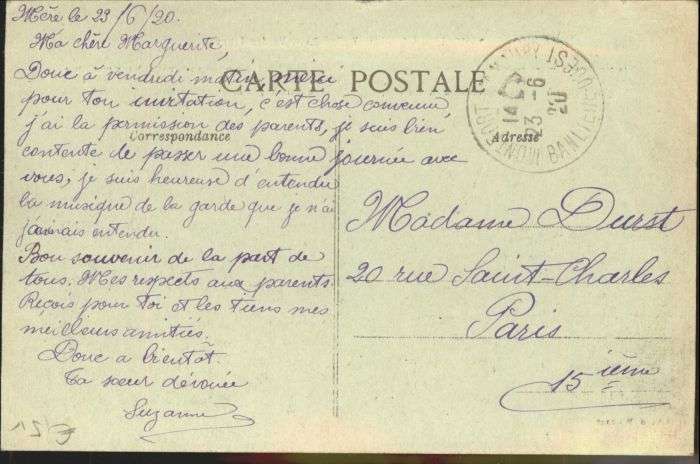 Mère le 23/6/20.
Ma chère Marguerite,
Donc à vendredi matin merci
pour ton invitation, c'est chose convenue,
j'ai la permission des parents, je suis bien
contente de passer une bonne journée avec
vous, je suis heureuse d'entendre
la musique de la garde que je n'ai
jamais entendu.
Bon souvenir de la part de
tous. Mes respects aux parents
Reçois pour toi et les tiens mes
meilleurs amitiés.
Donc a bientôt.
Ta sœur dévouée
Suzanne
CARTE POSTALE
Correspondance
Adresse
23 - 6
20
BANLIEUE
Madame Durst
20 rue Saint-Charles
Paris
15 ième